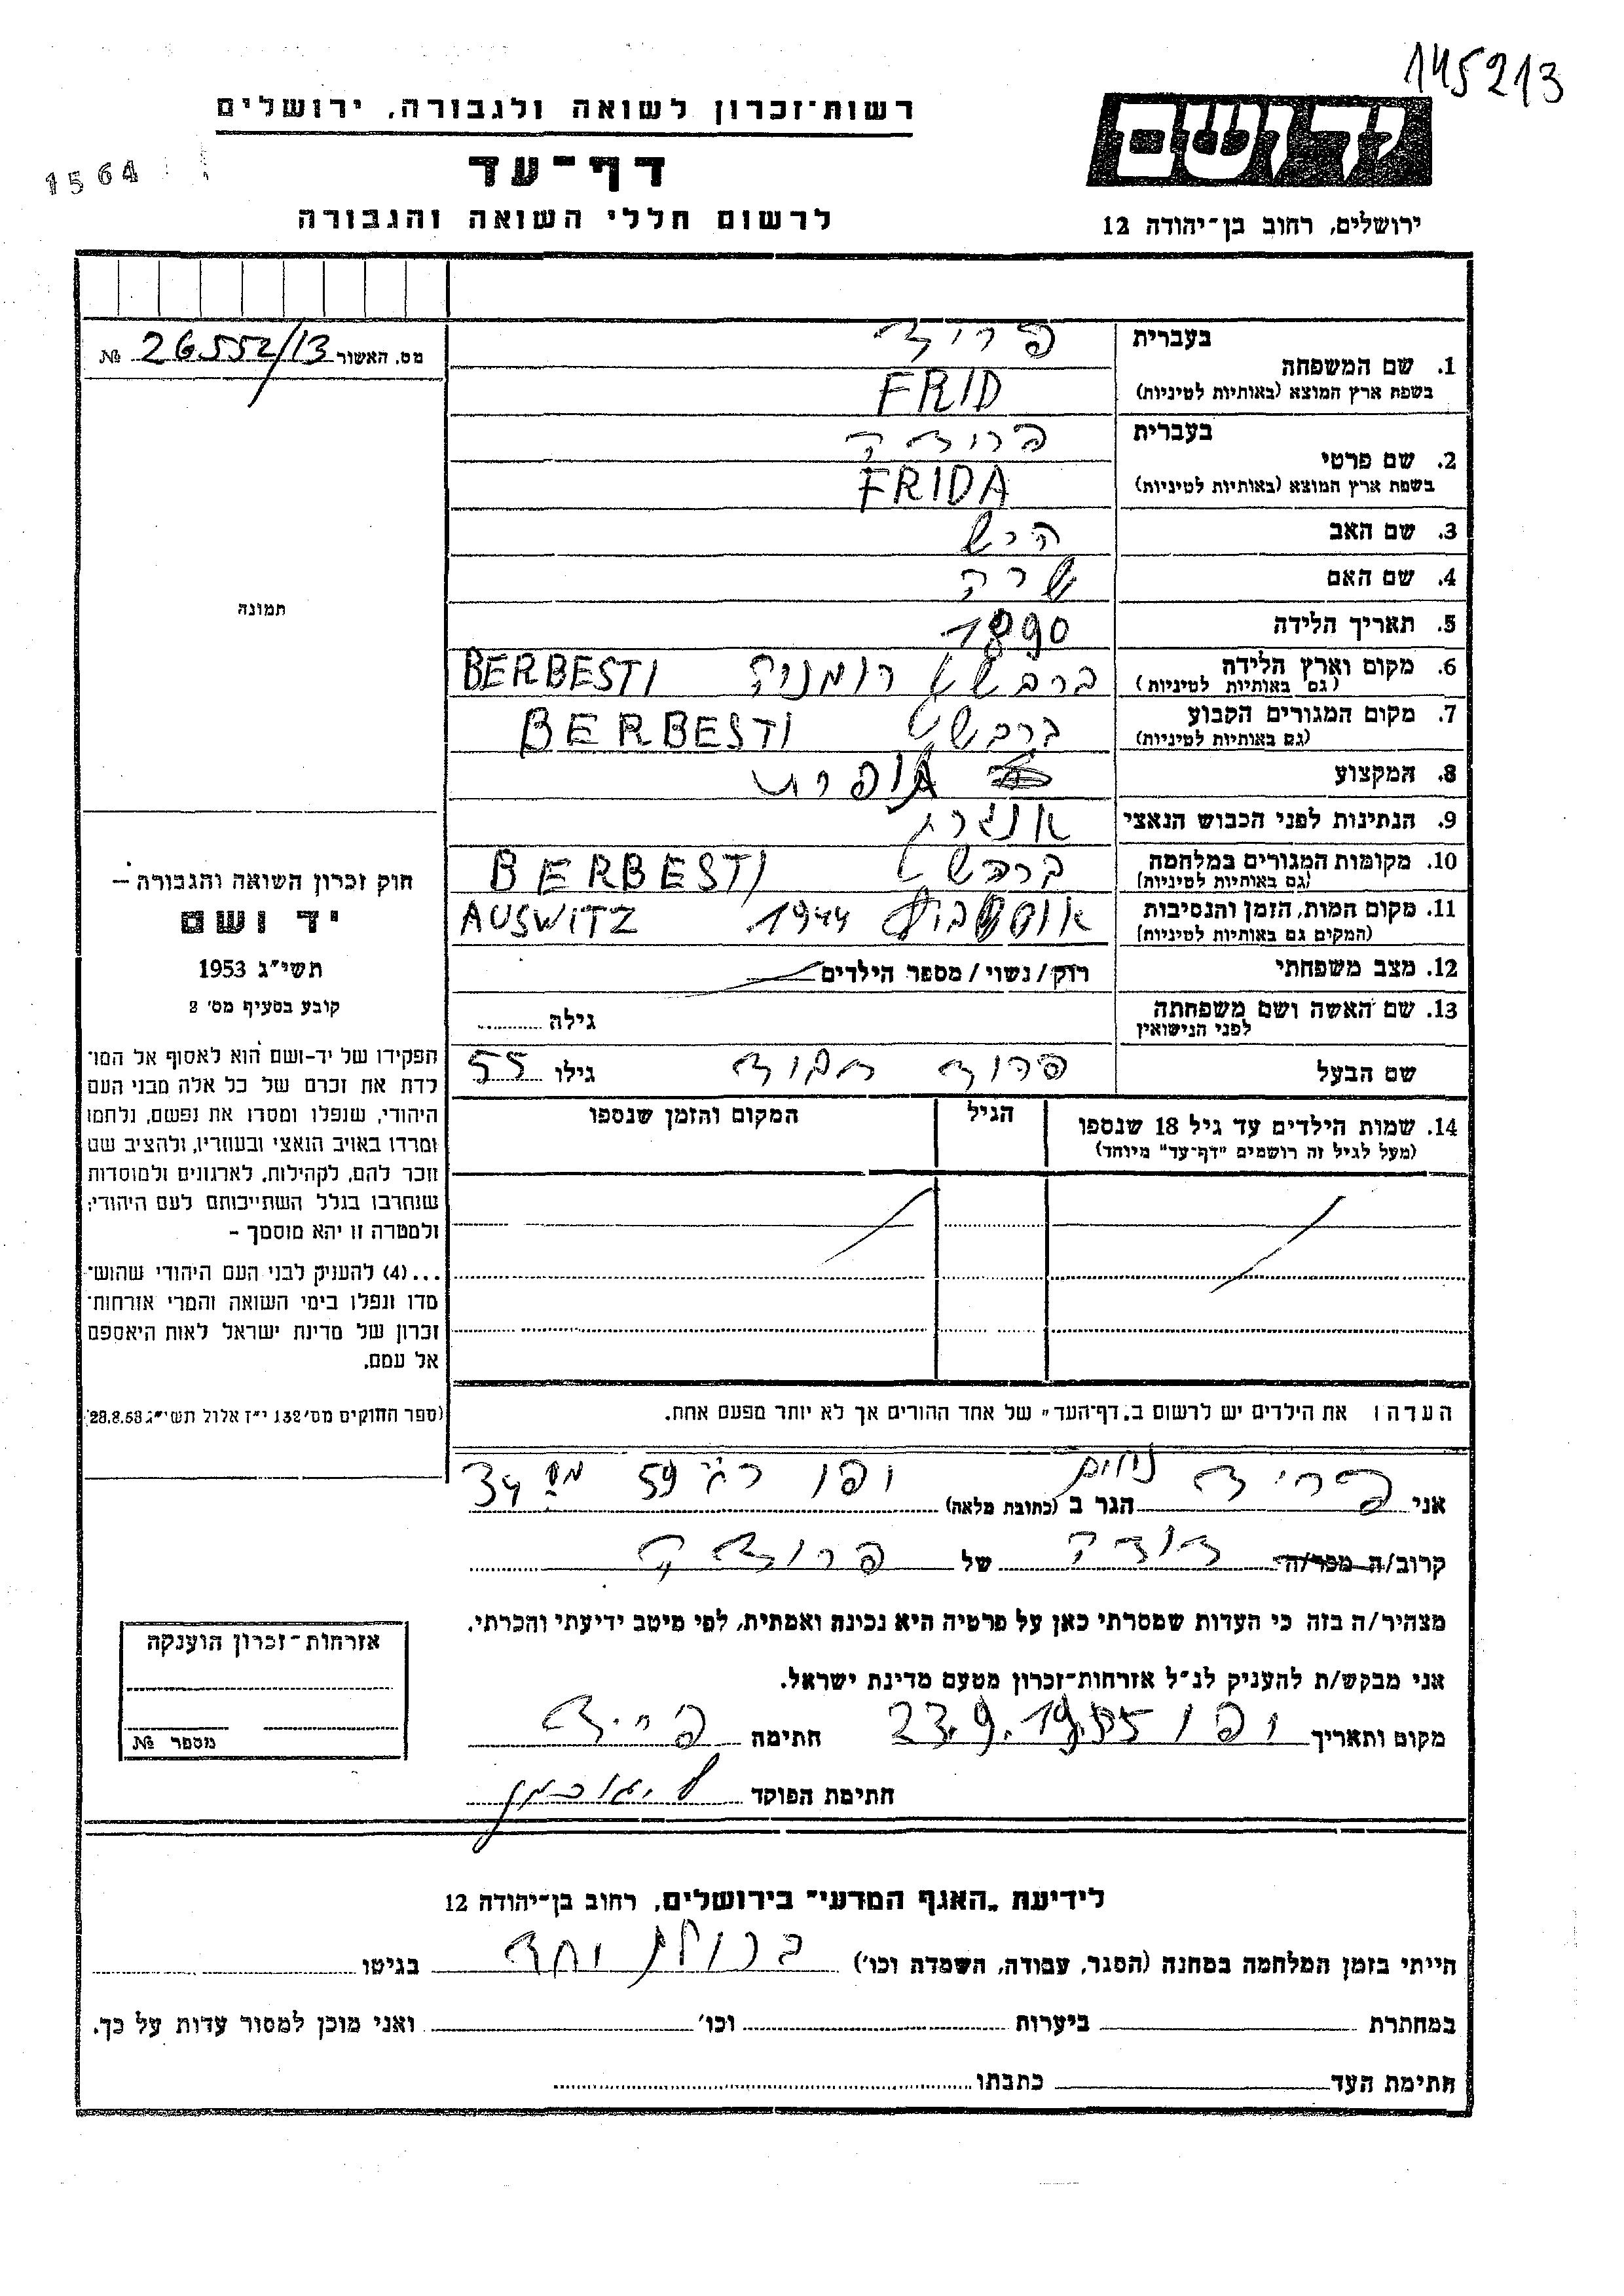 145213
רשות־זכרון לשואה ולגבורה, ירושלים
1564
דף־עד
לרשום חללי השואה והגבורה
יד ושם
ירושלים, רחוב בן־יהודה 12
מס. האשור 26552/13 №
בעברית פריד
1. שם המשפחה
בשפת ארץ המוצא (באותיות לטיניות) FRID
בעברית פרידה
2. שם פרטי
בשפת ארץ המוצא (באותיות לטיניות) FRIDA
3. שם האב הרש
4. שם האם שרה
5. תאריך הלידה 1890
6. מקום וארץ הלידה ברבשט רומניה BERBESTI
(גם באותיות לטיניות)
7. מקום המגורים הקבוע ברבשט BERBESTI
(גם באותיות לטיניות)
8. המקצוע
9. הנתינות לפני הכבוש הנאצי
10. מקומות המגורים במלחמה ברבשט BERBESTI
(גם באותיות לטיניות)
11. מקום המות, הזמן והנסיבות 1944 AUSWITZ
(המקום גם באותיות לטיניות)
12. מצב משפחתי רוק/נשוי/מספר הילדים
13. שם האשה ושם משפחתה גילה
לפני הנישואין
שם הבעל פריד גילו 55
14. שמות הילדים עד גיל 18 שנספו הגיל המקום והזמן שנספו
(מעל לגיל זה רושמים "דף־עד" מיוחד)
תמונה
חוק זכרון השואה והגבורה –
יד ושם
תשי"ג 1953
קובע בסעיף מס' 2
תפקידו של יד-ושם הוא לאסוף אל המו־
לדת את זכרם של כל אלה מבני העם
היהודי, שנפלו ומסרו את נפשם, נלחמו
ומרדו באויב הנאצי ובעוזריו, ולהציב שם
וזכר להם, לקהילות, לארגונים ולמוסדות
שנחרבו בגלל השתייכותם לעם היהודי;
ולמטרה זו יהא מוסמך –
...(4) להעניק לבני העם היהודי שהוש־
מדו ונפלו בימי השואה והמרי אזרחות־
זכרון של מדינת ישראל לאות היאספם
אל עמם.
(ספר החוקים מס' 132 י"ז אלול תשי"ג 28.8.53)
העדה: את הילדים יש לרשום ב"דף־העד" של אחד ההורים אך לא יותר מפעם אחת.
אני פריד נחום הגר ב (כתובת מלאה) יפו 59 מס 34
קרוב/ה מכר/ה דודה של פרידה
מצהיר/ה בזה כי העדות שמסרתי כאן על פרטיה היא נכונה ואמתית, לפי מיטב ידיעתי והכרתי.
אני מבקש/ת להעניק לנ"ל אזרחות־זכרון מטעם מדינת ישראל.
מקום ותאריך יפו 23.9.1955 חתימה פריד
חתימת הפוקד
אזרחות־זכרון הוענקה
מספר №
לידיעת "האגף המדעי" בירושלים, רחוב בן־יהודה 12
הייתי בזמן המלחמה במחנה (הסגר, עבודה, השמדה וכו') בגיטו
במחתרת ביערות וכו' ואני מוכן למסור עדות על כך.
חתימת העד כתבתו